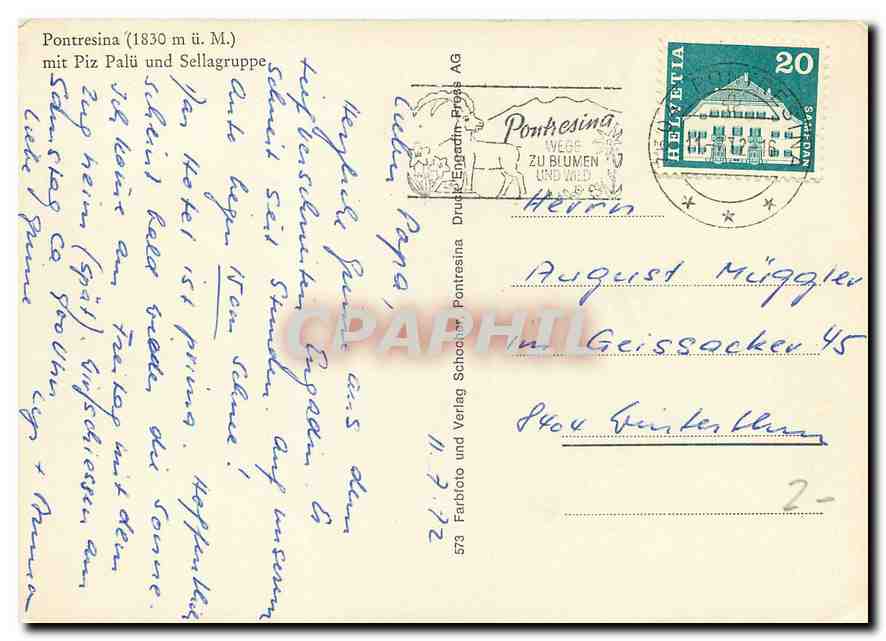 Pontresina (1830 m ü. M.)
mit Piz Palü und Sellagruppe
11.7.72
Lieber Papa,
Herzliche Grüsse aus dem
tiefverschneiten Engadin. Es
schneit seit Stunden. Auf unserem
Auto liegen 15 cm Schnee!
Das Hotel ist prima. Hoffentlich
scheint bald wieder die Sonne.
Ich komme am Freitag mit dem
Zug heim (spät). Einschiessen am
Samstag ca 900 Uhr
Liebe Grüsse
+
573 Farbfoto und Verlag Schocher, Pontresina Druck Engadin Press AG
Pontresina
WEGE
ZU BLUMEN
UND WILD
PONTRESINA
HELVETIA
20
SAMEDAN
Herrn
August Müggler
im Geissacker 45
8404 Winterthur
2-
CPAPHIL